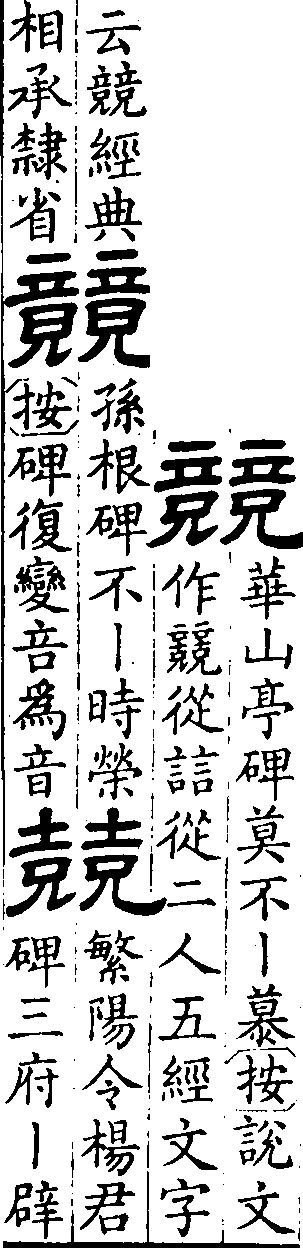 競
華山亭碑莫不丨慕按說文
作競從誩從二人五經文字
云競經典
相承隸省
競
孫根碑不丨時榮
按碑復變咅爲音
競
繁陽令楊君
碑三府丨辟